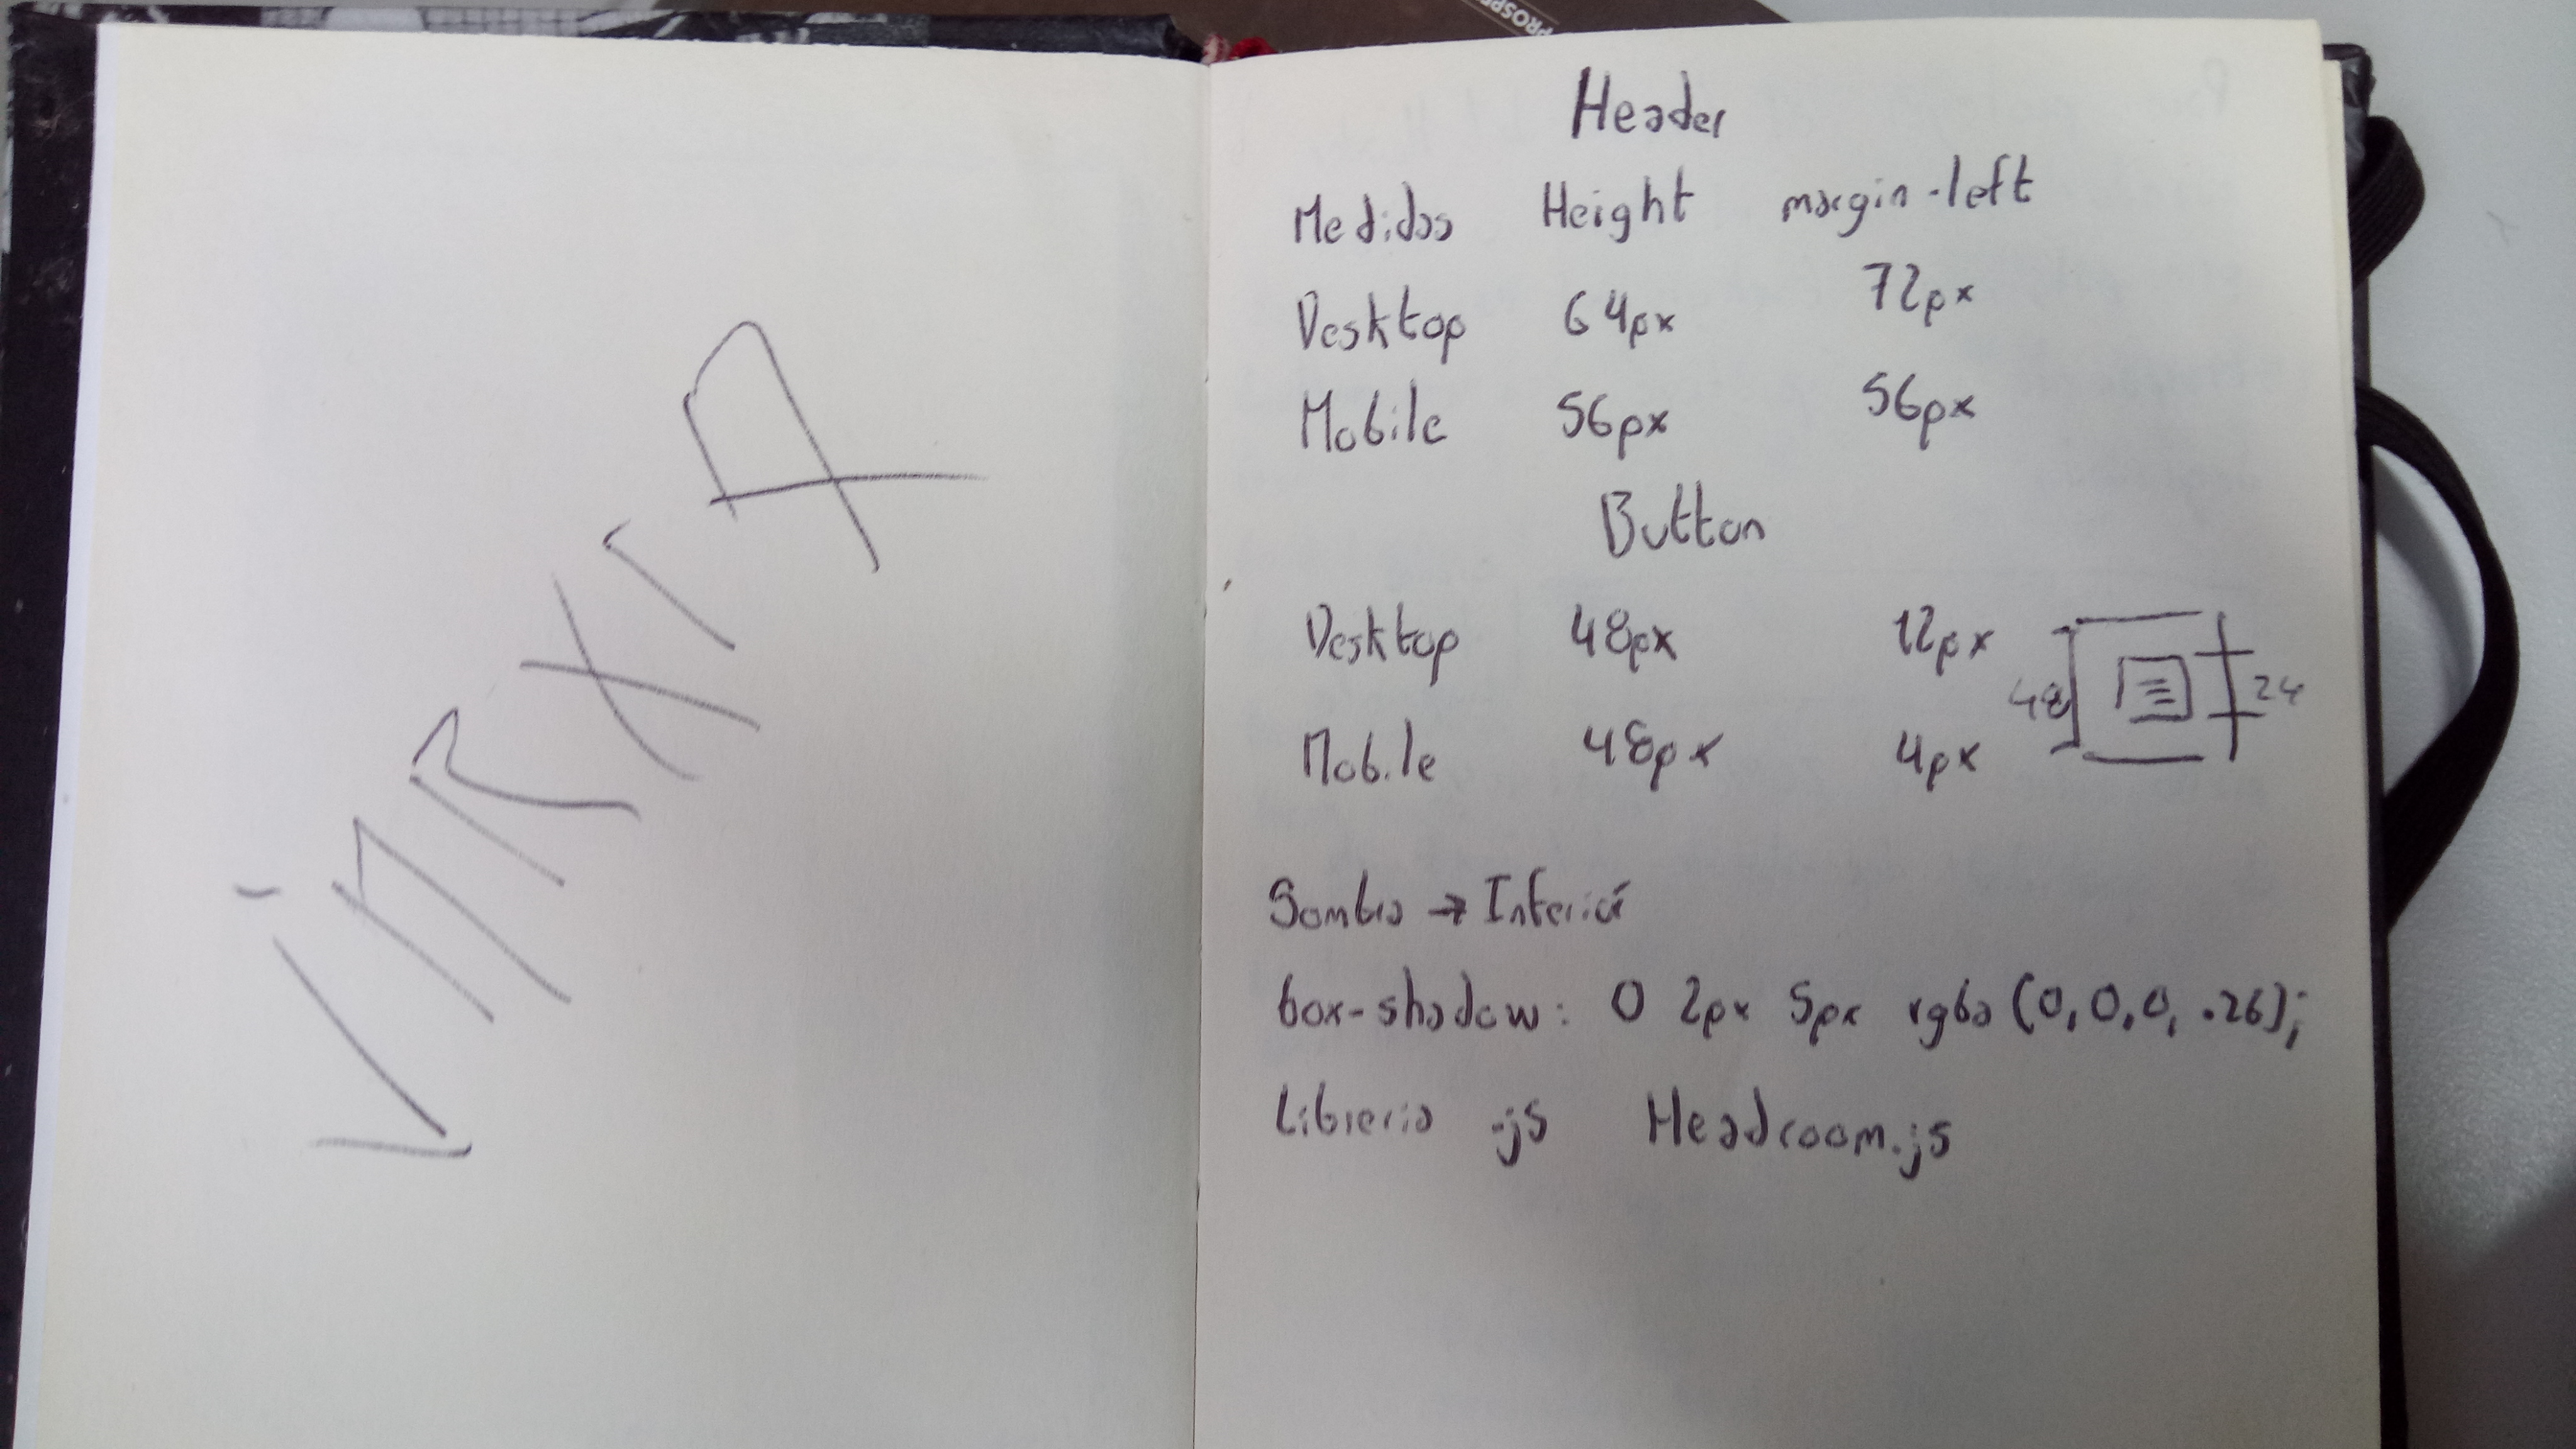 PROSPE
Header
Medidas Height margin-left
Desktop 64px 72px
Mobile 56px 56px
Button
Desktop 48px 12px
48 24
Mobile 48px 4px
Sombra → Inferior
box-shadow: 0 2px 5px rgba (0,0,0, .26);
Libreria .js Headroom.js